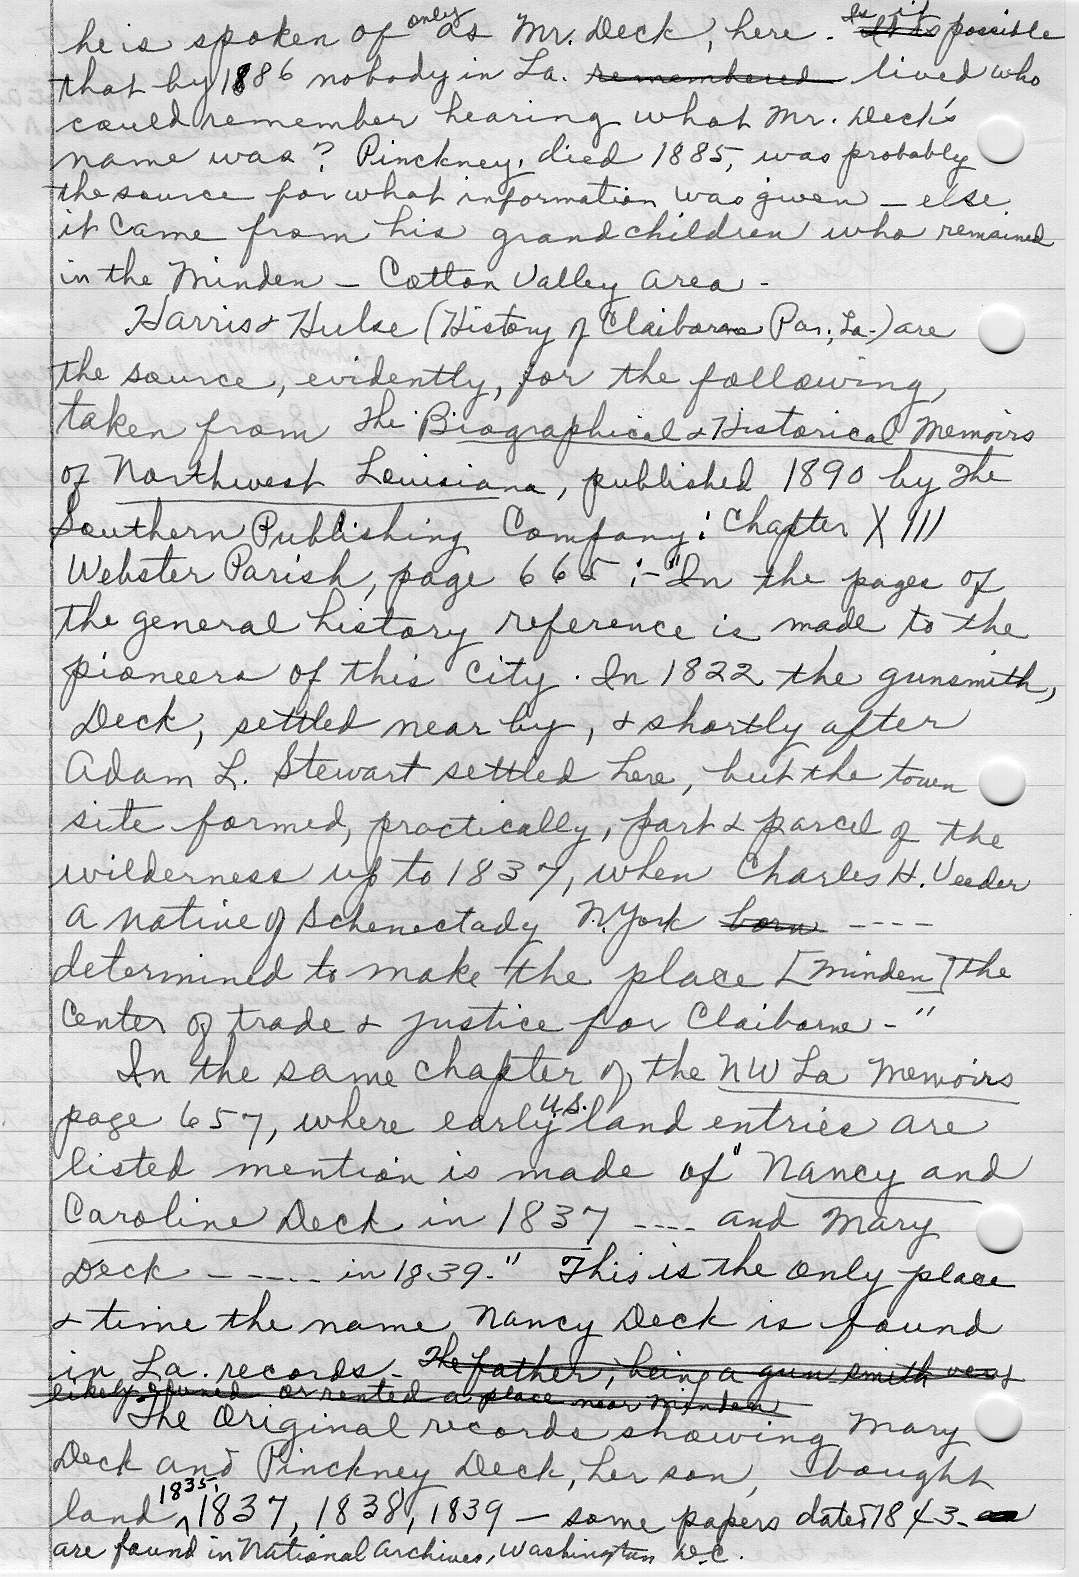 he is spoken of only as Mr. Deck, here - Is it It is possible
that by 1886 nobody in La. remembered lived who
could remember hearing what Mr. Deck's
name was? Pinckney, died 1885, was probably
the source for what information was given - else
it came from his grandchildren who remained
in the Minden - Cotton Valley area -
Harris & Hulse (History of Claiborne Par., La.) are
the source, evidently, for the following,
taken from The Biographical & Historical Memoirs
of Northwest Louisiana, published 1890 by The
Southern Publishing Company: Chapter XIII
Webster Parish, page 665 :- "In the pages of
the general history reference is made to the
pioneers of this city. In 1822 the gunsmith,
Deck, settled near by, & shortly after
Adam L. Stewart settled here, but the town
site formed, practically, part & parcel of the
wilderness up to 1837, when Charles H. Veeder
a native of Schenectady N. York born ----
determined to make the place [Minden] the
center of trade & justice for Claiborne -"
In the same chapter of the NW La Memoirs
page 657, where early U.S. land entries are
listed mention is made of "Nancy and
Caroline Deck in 1837 ---- and Mary
Deck ----- in 1839-" This is the only place
& time the name Nancy Deck is found
in La. records - The father, being a gun smith very
likely owned or rented a place near Minden
The Original records showing Mary
Deck and Pinckney Deck, her son, bought
land 1835, 1837, 1838, 1839 - some papers dated 1843-
are found in National Archives, Washington D.C.